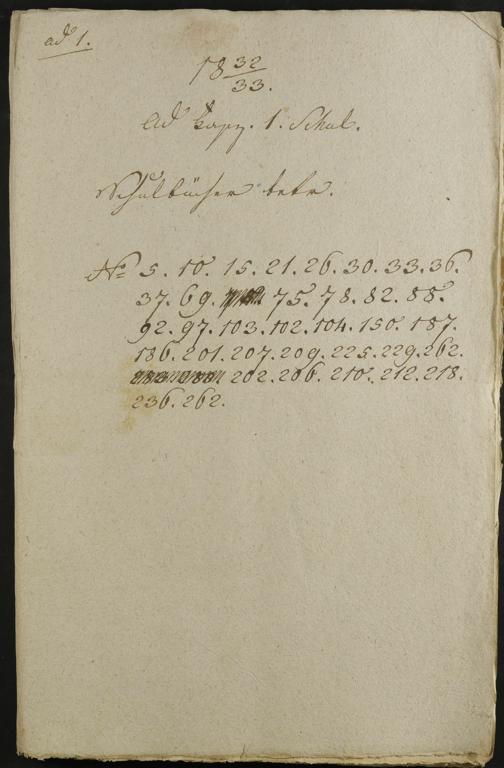 ad 1.
18 32/33.
Ad 1. Schul.
Schulbücher betr.
No 5. 10. 15. 21. 26. 30. 33. 36.
37. 69. 75. 78. 82. 88.
92. 97. 103. 102. 104. 150. 187.
186. 201. 207. 209. 225. 229. 262.
202. 206. 210. 212. 218.
236. 262.